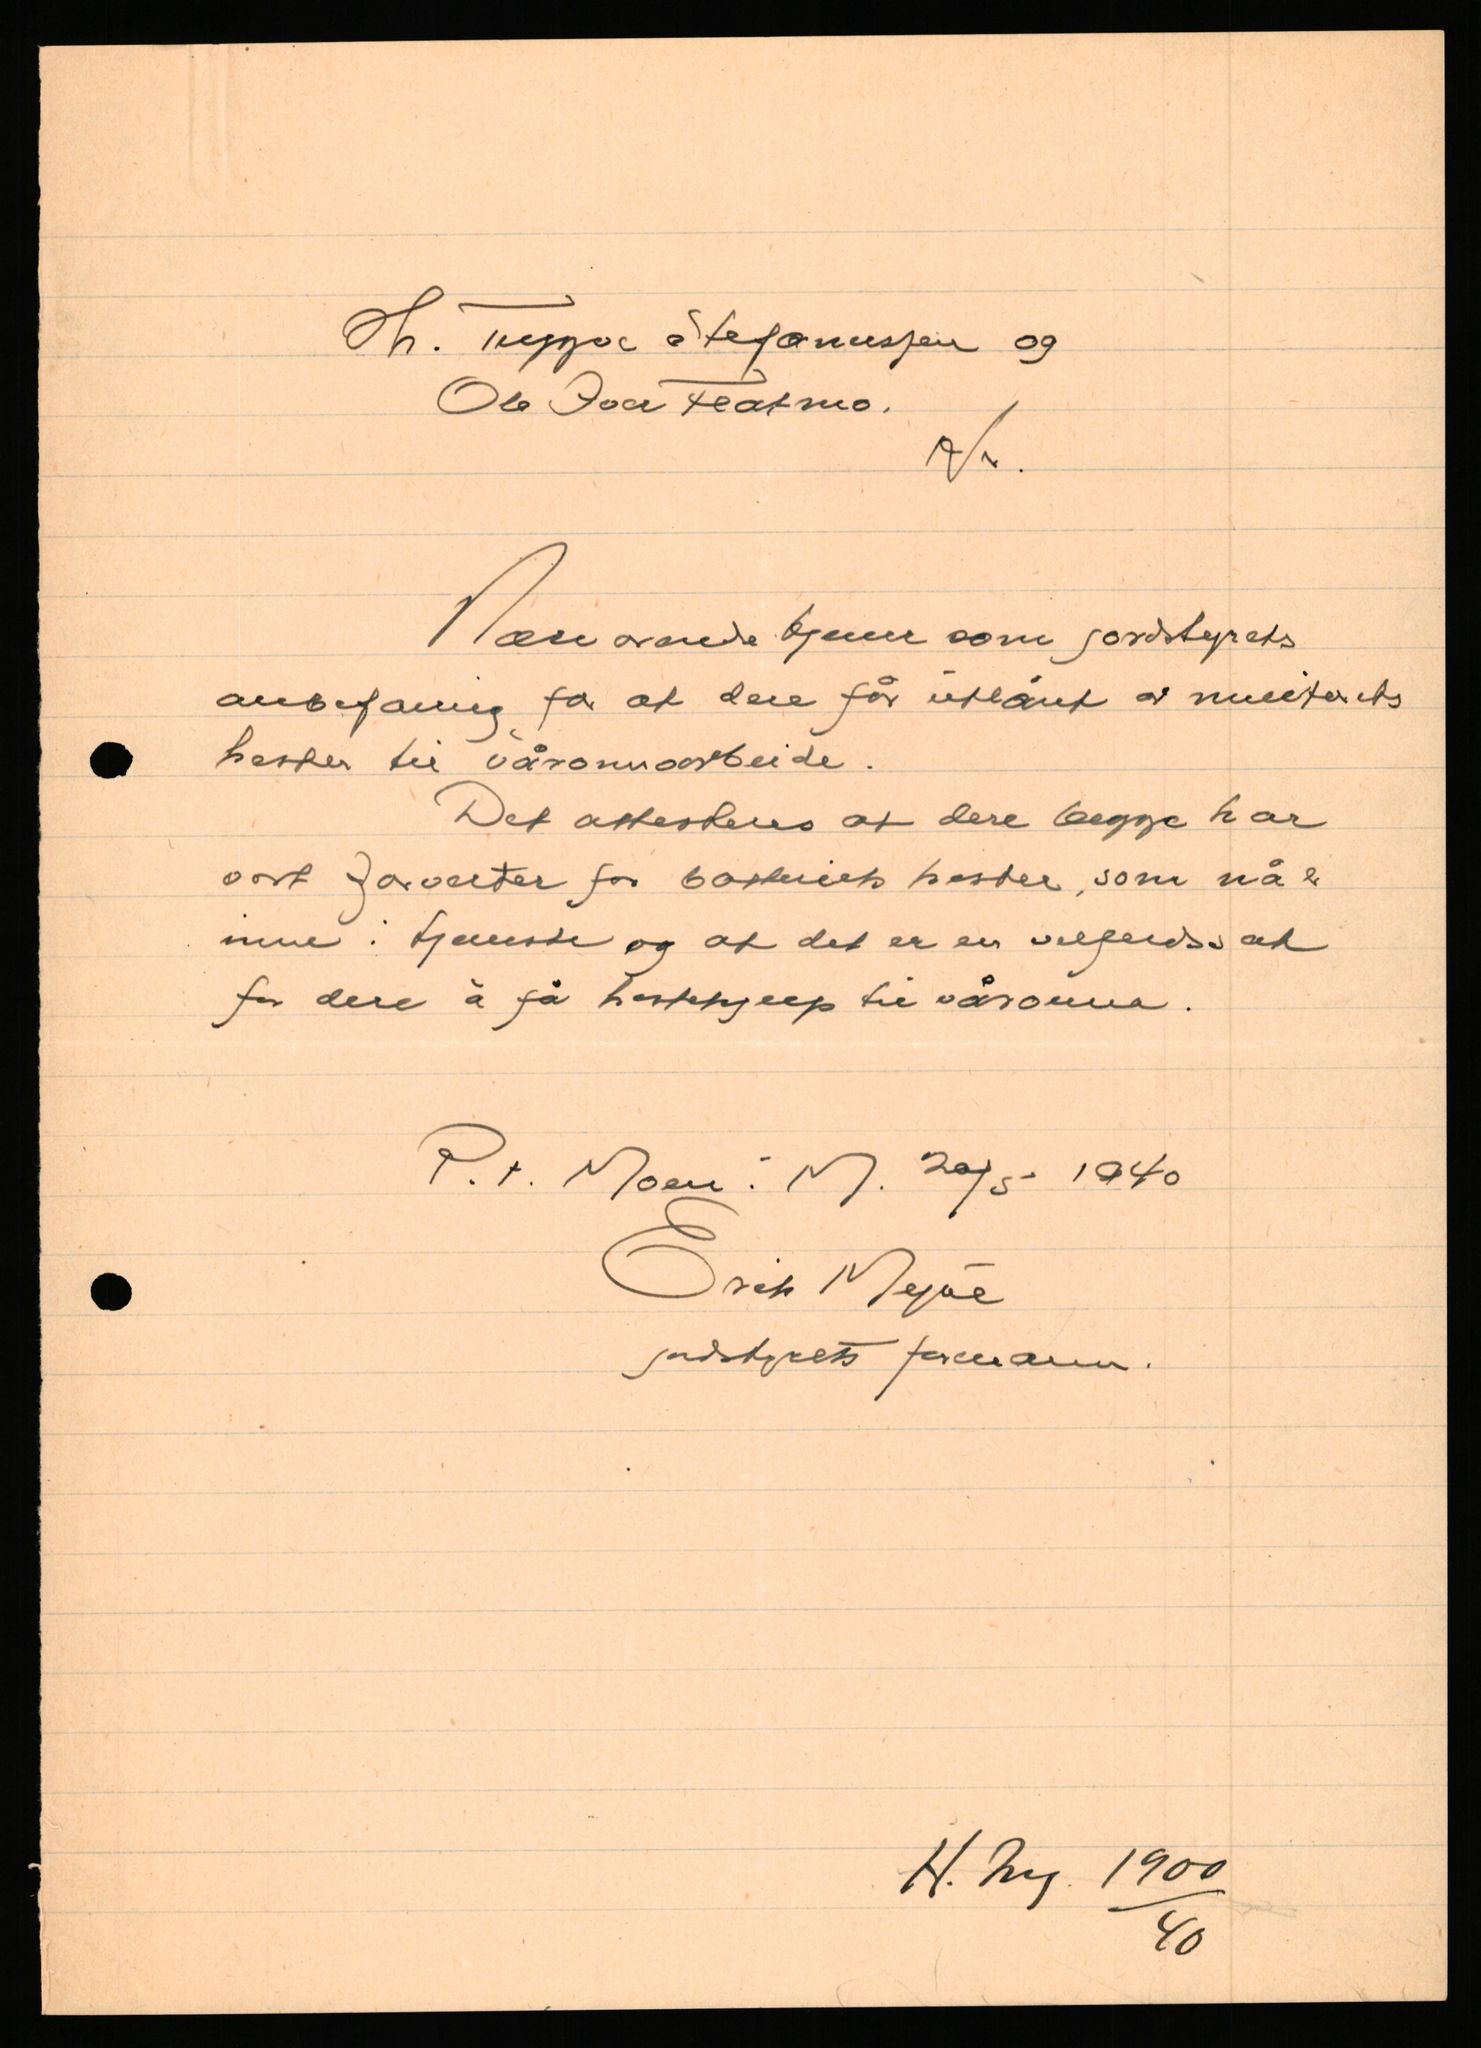 Hr. Trygve Stefanussen og
Ole Ivar Flatmo.
Nærværende tjener som jordstyrets
anbefaling for at dere får utlånt av militærets
hester til våronnarbeide.
Det attesteres at dere begge har
vært forverter for hester, som nå er
inne i tjeneste og at det er en velferdssak
for dere å få hestehjelp til våronna.
P.t. Moen i M. 20/5 1940
Erik Mejöe
jordstyrets formann.
H. 1900
40